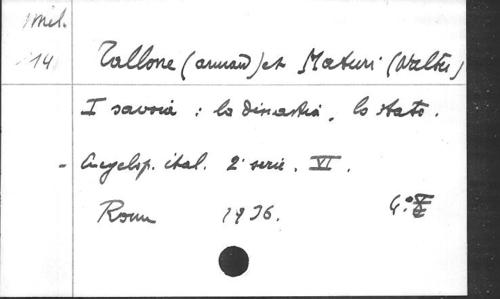 Imil.
114
Tallone (armand) et Maturi (Walter)
I savoia : la dinastia, lo stato.
- Encyclop. ital. 2e serie. VI.
Rome 1936. 4: